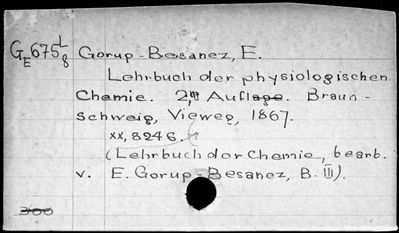 GE675 L/8 Gorup-Besanez, E.
Lehrbuch der physiologischen
Chemie. 2te Auflage. Braun-
schweig, Vieweg, 1867.
xx, 824 S.
(Lehrbuch der Chemie, bearb.
v. E. Gorup-Besanez, B. III).
300